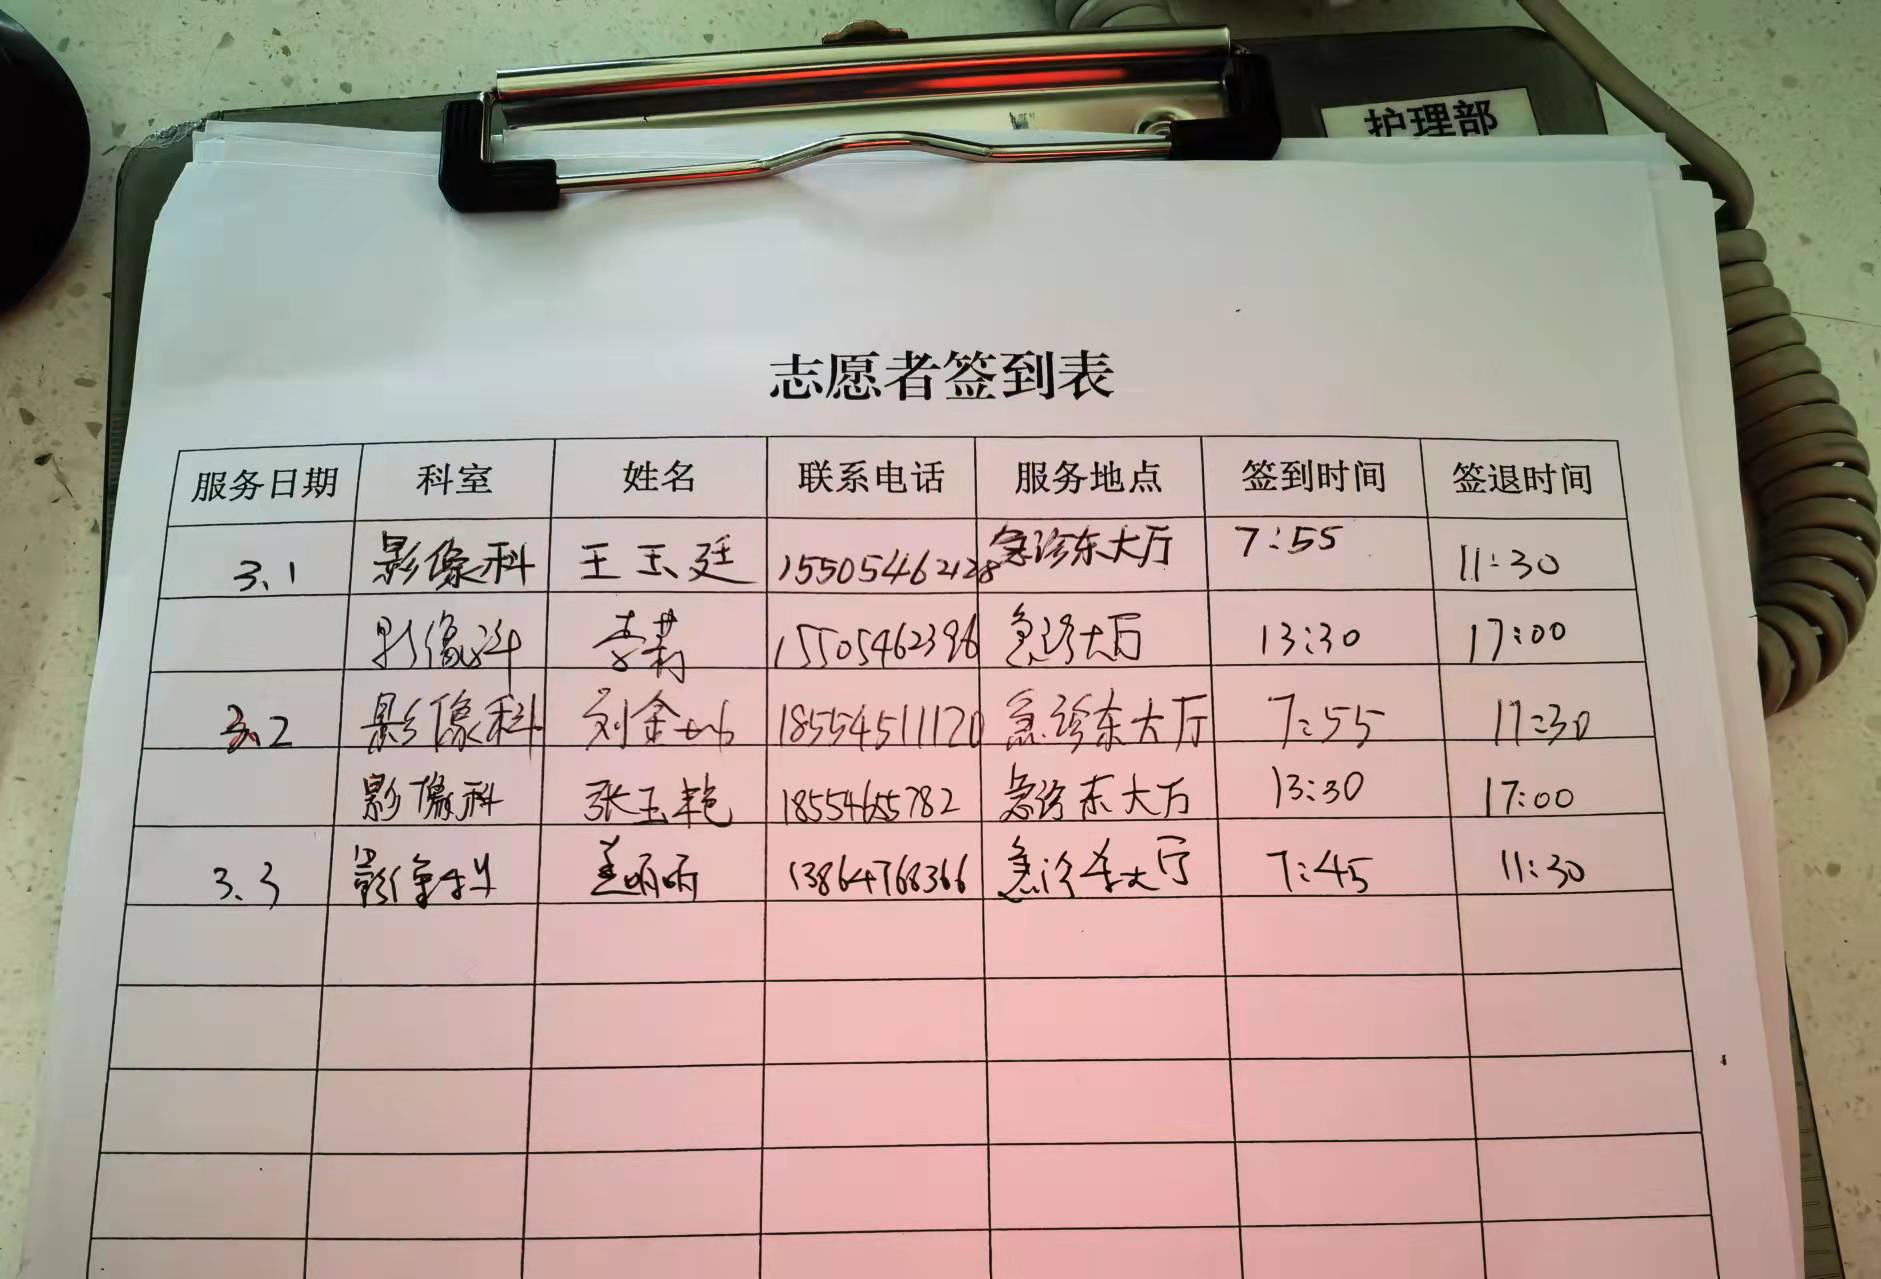 护理部
志愿者签到表
服务日期 科室 姓名 联系电话 服务地点 签到时间 签退时间
3.1 影像科 王玉廷 15505462128 急诊东大厅 7:55 11:30
影像科 李莉 15505462396 急诊大厅 13:30 17:00
3.2 影像科 刘金 18554511120 急诊东大厅 7:55 11:30
影像科 张玉艳 18554655782 急诊东大厅 13:30 17:00
3.3 影像科 13864768366 急诊东大厅 7:45 11:30